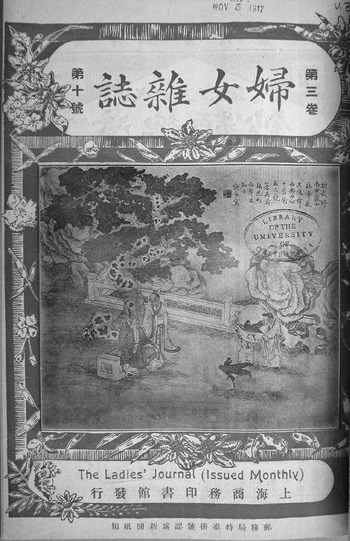 NOV 5 1917
V.3
第三卷
婦女雜誌
第十號
LIBRARY
OF THE
UNIVERSITY
OF
The Ladies' Journal (Issued Monthly)
上海商務印書館發行
郵務局特准掛號認爲新聞紙類